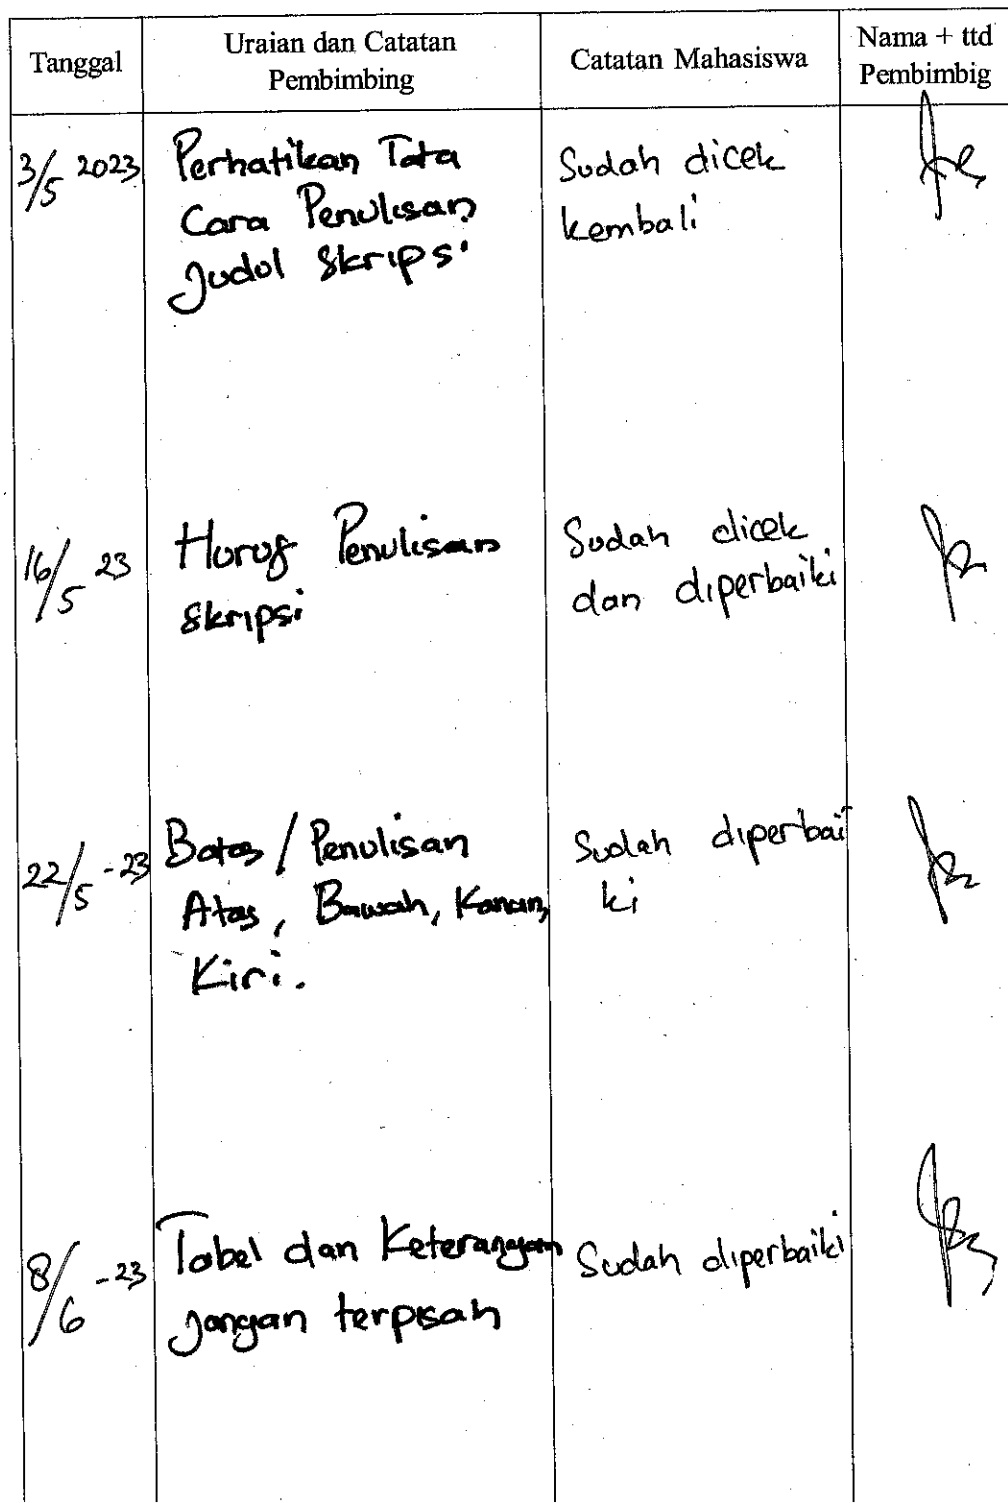 Tanggal
Uraian dan Catatan
Pembimbing
Catatan Mahasiswa
Nama + ttd
Pembimbig
3/5 2023
Perhatikan Tata
Cara Penulisan
Judul Skripsi
Sudah dicek
kembali
16/5 23
Huruf Penulisan
Skripsi
Sudah dicek
dan diperbaiki
22/5 -23
Batas / Penulisan
Atas, Bawah, Kanan,
Kiri.
Sudah diperbai
ki
8/6 -23
Tabel dan Keterangan
Jangan terpisah
Sudah diperbaiki